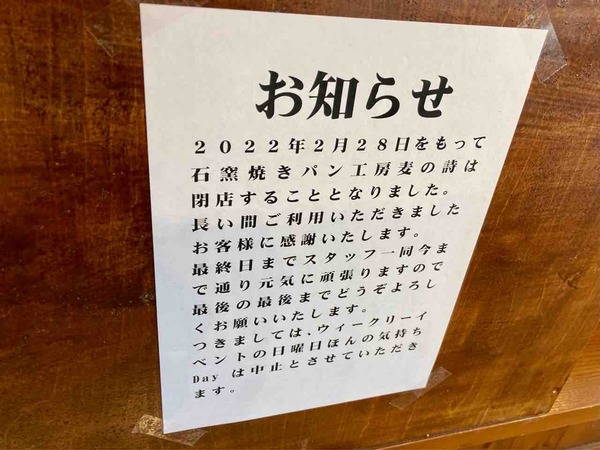 お知らせ
２０２２年２月２８日をもって
石窯焼きパン工房麦の詩は
閉店することとなりました。
長い間ご利用いただきました
お客様に感謝いたします。
最終日までスタッフ一同今ま
で通り元気に頑張りますので
最後の最後までどうぞよろし
くお願いいたします。
つきましては、ウィークリーイ
ベントの日曜日ほんの気持ち
Day は中止とさせていただき
ます。